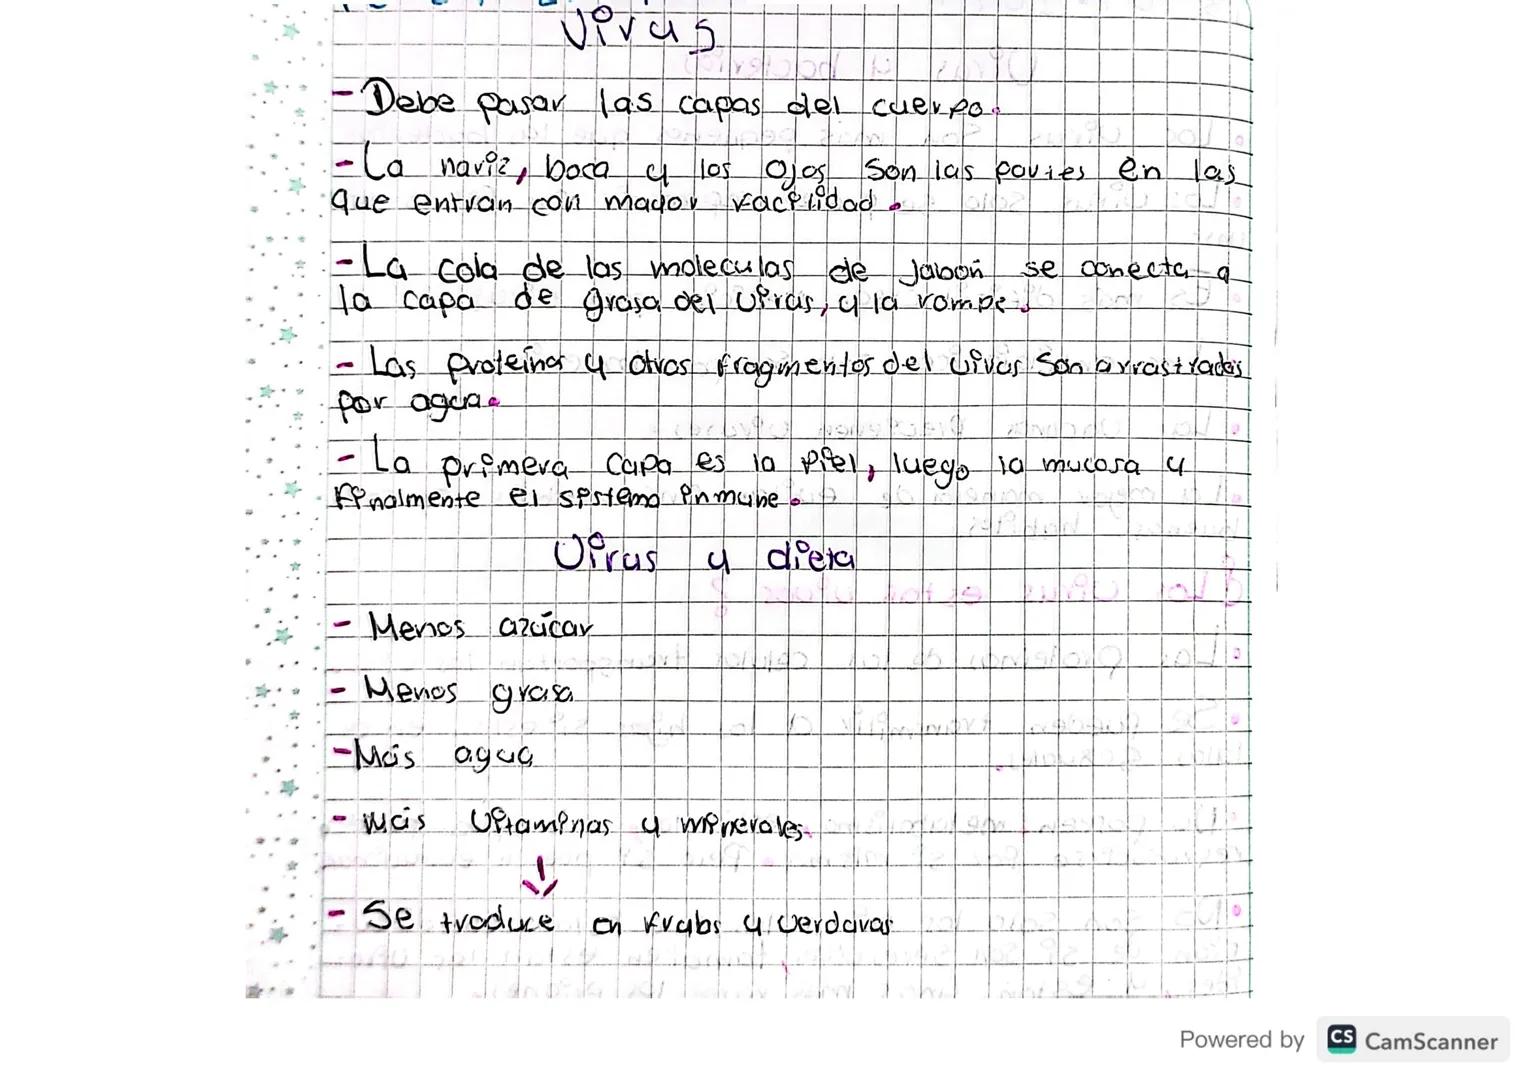 Virus
- Debe pasar las capas del cuerpo.
- La nariz, boca y los ojos son las partes en las
que entran con mayor facilidad.
- La cola de las moleculas de Jabón se conecta a
la capa de grasa del virus, y la rompe.
- Las proteínas y otros fragmentos del virus son arrastrados
por agua.
- La primera capa es la piel, luego la mucosa y
finalmente el sistema inmune.
Virus y dieta
- Menos azúcar
- Menos grasa
- Más agua
- Más vitaminas y minerales.
- Se traduce en frutas y verduras
Powered by CS CamScanner